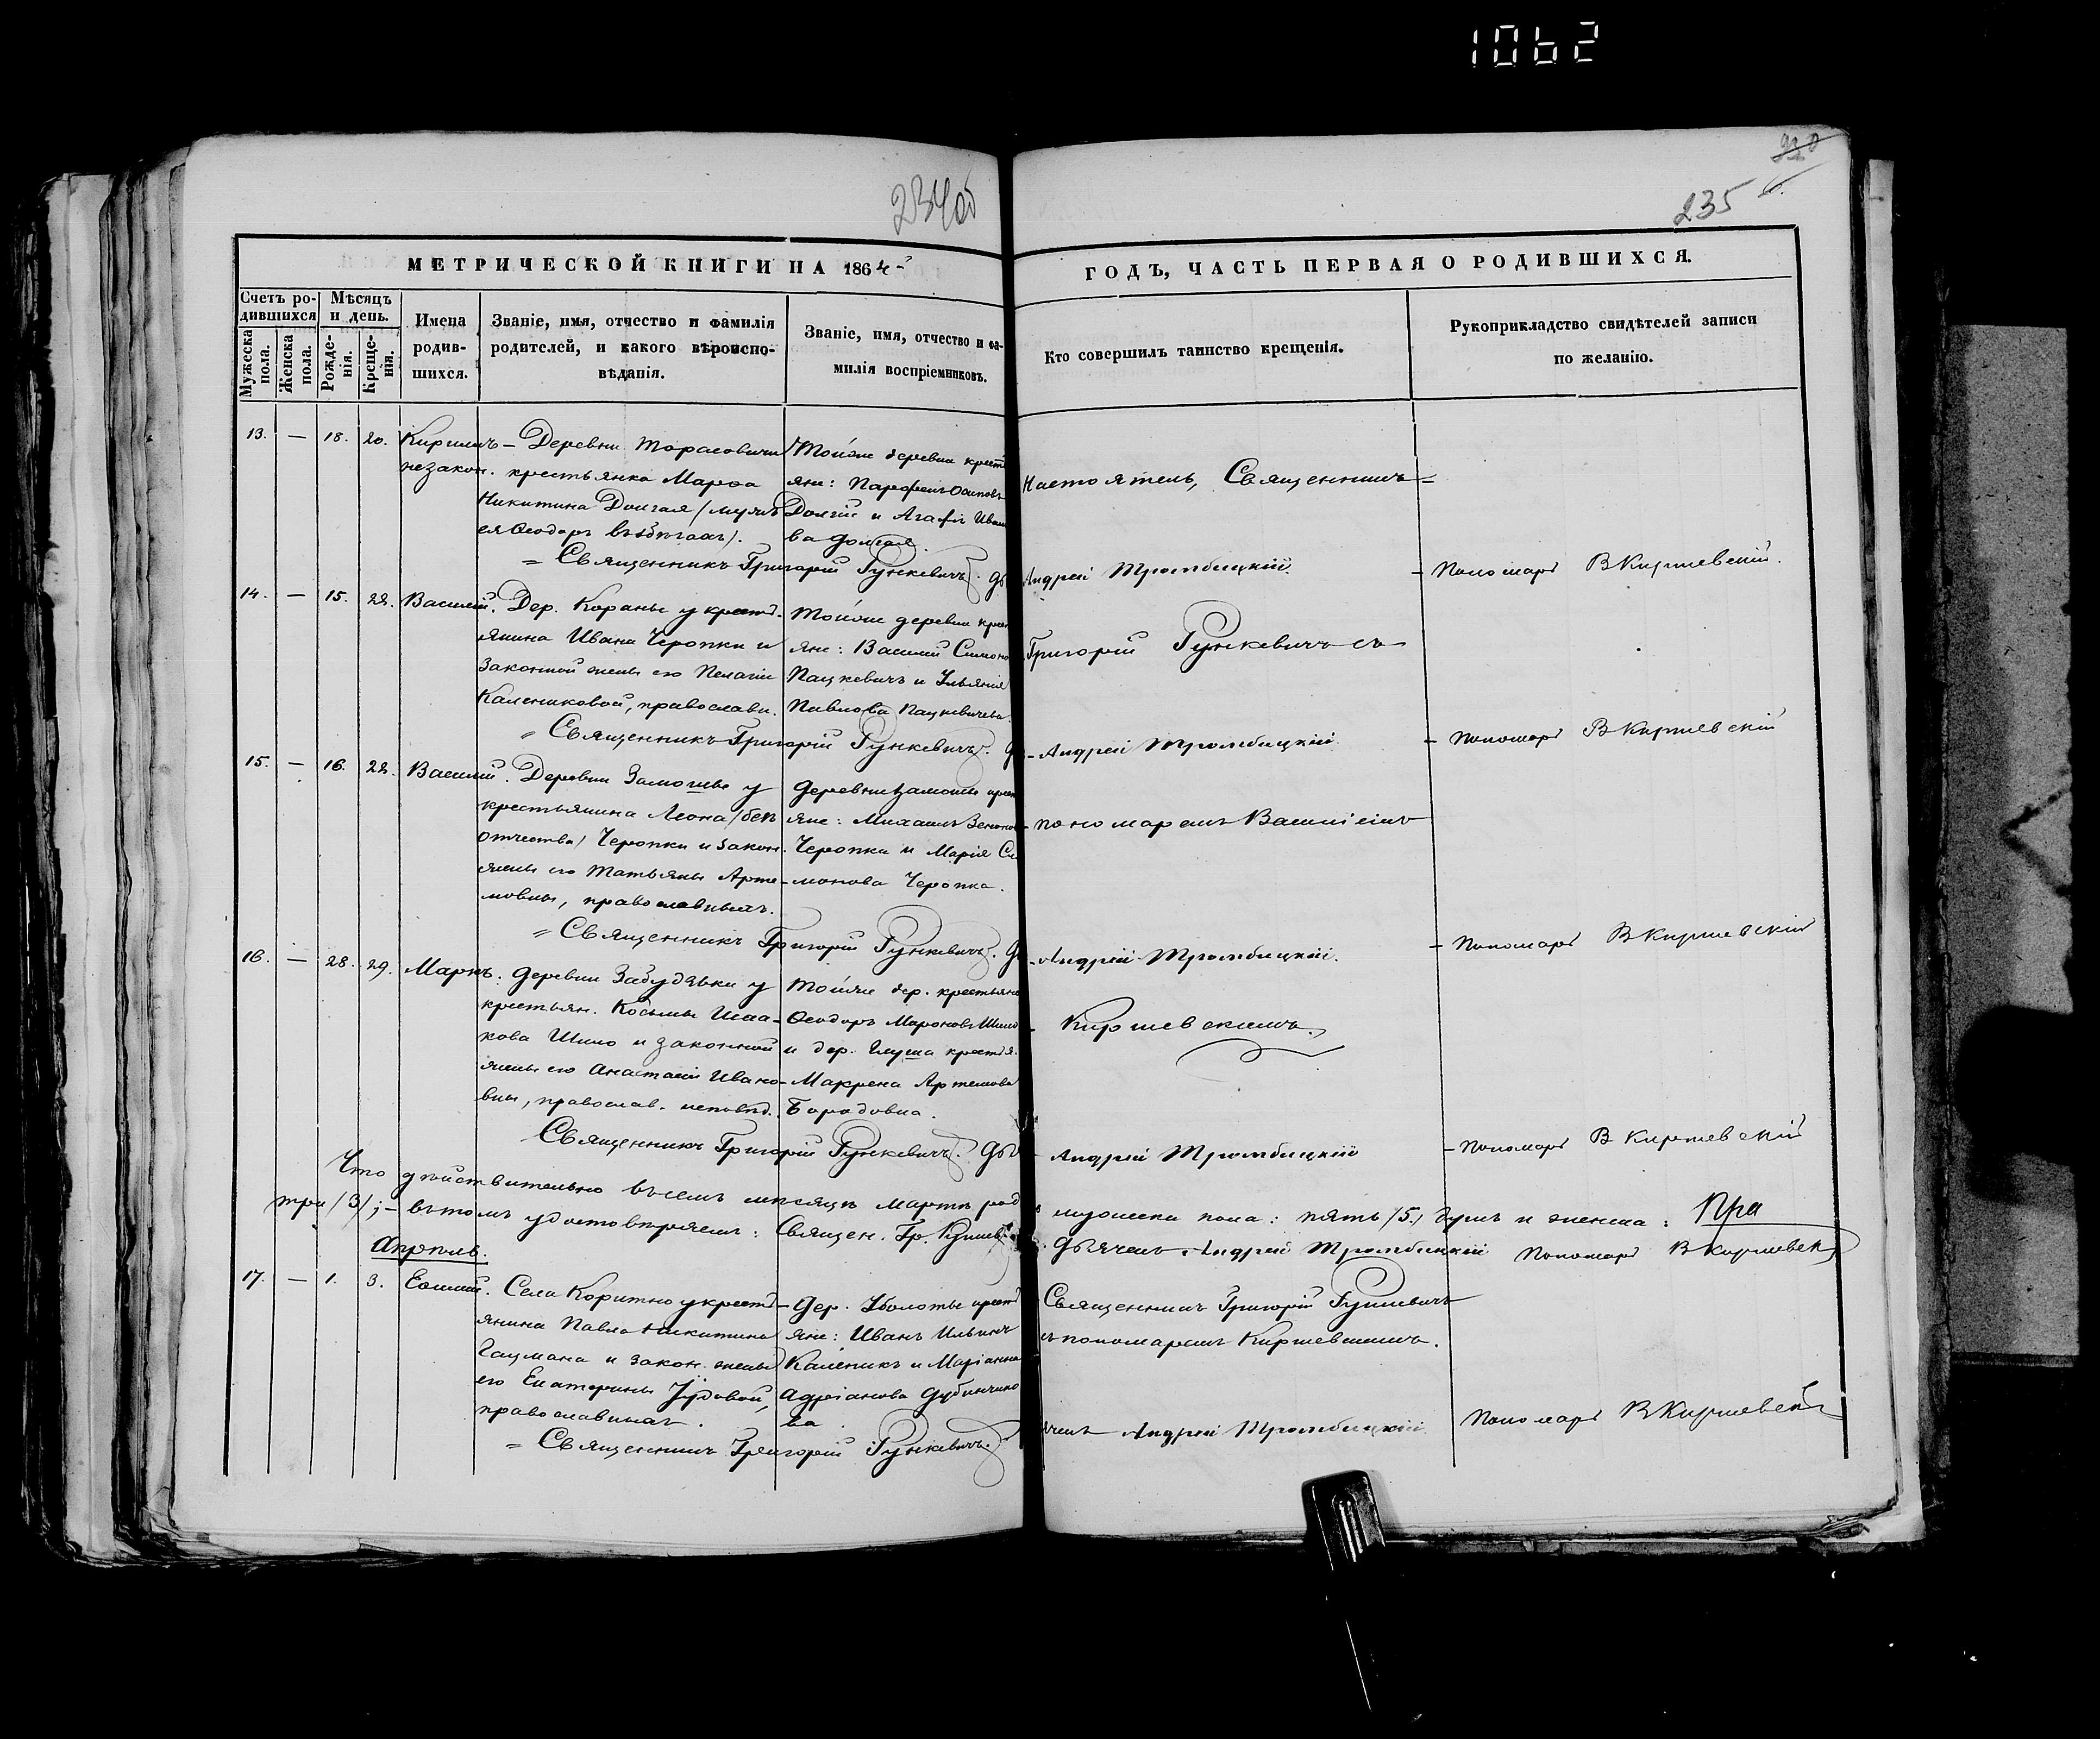 1062
930
234об
235
МЕТРИЧЕСКОЙ КНИГИ НА 1864
ГОДЪ, ЧАСТЬ ПЕРВАЯ О РОДИВШИХСЯ.
Счетъ ро-
дившихся
Мужеска пола.
Женска пола.
Мѣсяцъ
и день.
Рожде-
нія.
Креще-
нія.
Имена
родив-
шихся.
Званіе, имя, отчество и фамилія
родителей, и какого вѣроиспо-
вѣданія.
Званіе, имя, отчество и фа-
милія воспріемниковъ.
Кто совершилъ таинство крещенія.
Рукоприкладство свидѣтелей записи
по желанію.
13. — 18. 20. Кириллъ
незакон.
Деревни Тарасовичи
крестьянка Марѳа
Никитина Долгая /мужъ
ея Ѳеодоръ въ бѣгахъ/.
Тойже деревни крестъ
яне: Парфенъ Осиповъ
Долгій и Агафія Ивано
ва Долгая.
Настоятель, Священникъ
= Священникъ Григорій Рункевичъ. Дь
Андрей Тромбицкій
- Пономарь В Киршевскій.
14. — 15. 22. Василій.
Дер. Кораны у крестъ.
янина Ивана Черопки и
законной жены его Пелагіи
Калениковой, православн.
Тойже деревни крест
яне: Василій Симоно
Пацкевичъ и Ульянія
Павлова Пацкевичева.
Григорій Рункевичъ съ
= Священникъ Григорій Рункевичъ. Д
- Андрей Тромбицкій
- Пономарь В Киршевскій
15. — 16. 22. Василій.
Деревни Замошье у
крестьянина Леона /безъ
отчества/ Черопки и закон.
жены его Татьяны Арте-
мовны, православныхъ.
Деревни Замошье крест
яне: Михаилъ Зенонов
Черопка и Марія Си
монова Черопка.
пономаремъ Василіемъ
= Священникъ Григорій Рункевичъ. Д
- Андрей Тромбицкій.
- Пономарь В Киршевскій
16. — 28. 29. Маркъ.
Деревни Забудзьки у
крестьян. Косьмы Исаа-
кова Шило и законной
жены его Анастасіи Ивано-
вны, православ. исповѣд.
Тойже дер. крестьяне
Ѳеодоръ Мароновъ Шило
и дер. Глуша крестья.
Макрена Артемова
Бородовна.
Киршевскимъ.
Священникъ Григорій Рункевичъ. Дья
Андрей Тромбицкій
- Пономарь В Киршевскій
Что дѣйствительно въ семъ мѣсяцѣ Мартѣ род
мужеска пола: пять /5./ душъ и женска:
три /3/; – въ томъ удостовѣряемъ: Священ. Гр. Рункев
Дьячекъ Андрей Тромбицкій Пономарь В Киршевск
Апрѣль.
17. — 1. 3. Евѳимій.
Села Коритно у крестъ
янина Павла Никитина
Гацмана и закон. жены
его Екатерины Іудовой,
православныхъ.
Дер. Уболотье крест
яне: Иванъ Ильинъ
Каленикъ и Маріанна
Адріанова Дубинчико
ва
Священникъ Григорій Рункевичъ
съ пономаремъ Киршевскимъ.
= Священникъ Григорій Рункевичъ.
ячекъ Андрей Тромбицкій
Пономарь В Киршевскі